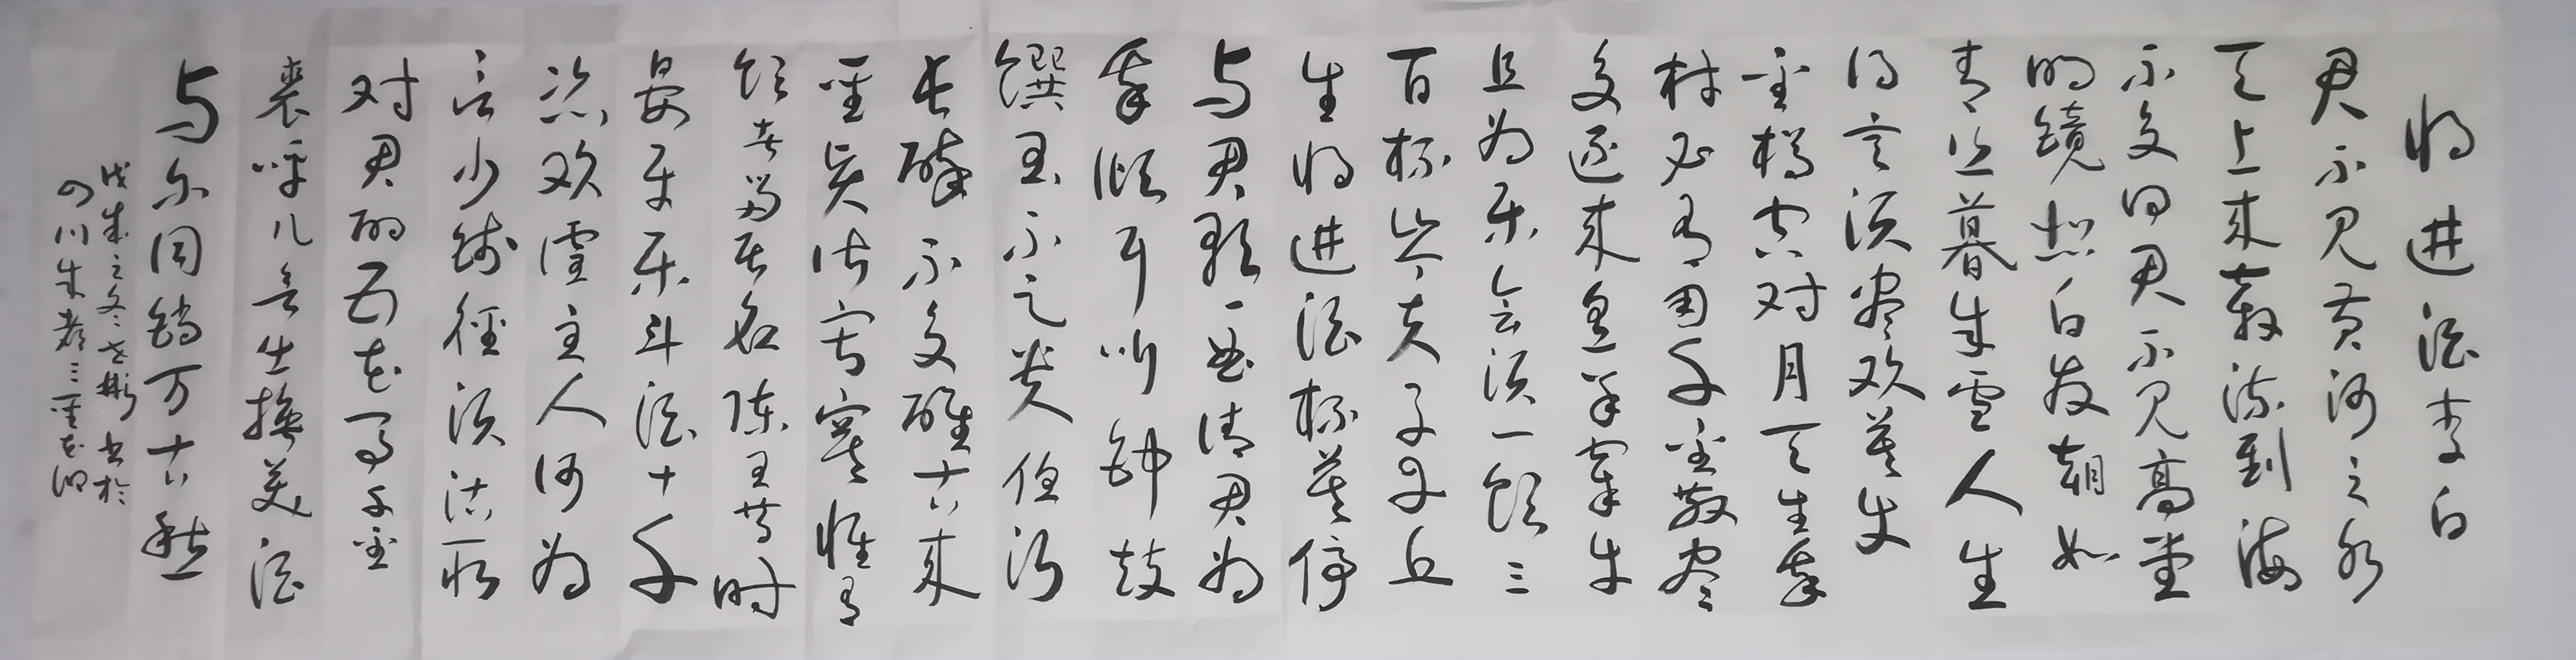 将进酒李白
君不见黄河之水
天上来奔流到海
不复回君不见高堂
明镜悲白发朝如
青丝暮成雪人生
得意须尽欢莫使
金樽空对月天生我
材必有用千金散尽
复还来烹羊宰牛
且为乐会须一饮三
百杯岑夫子丹丘
生将进酒杯莫停
与君歌一曲请君为
我倾耳听钟鼓
馔玉不足贵但愿
长醉不复醒古来
圣贤皆寂寞惟有
饮者留其名陈王昔时
宴平乐斗酒十千
恣欢谑主人何为
言少钱径须沽取
对君酌五花马千金
裘呼儿将出换美酒
与尔同销万古愁
戊戌之冬彬书於
四川成都三圣花